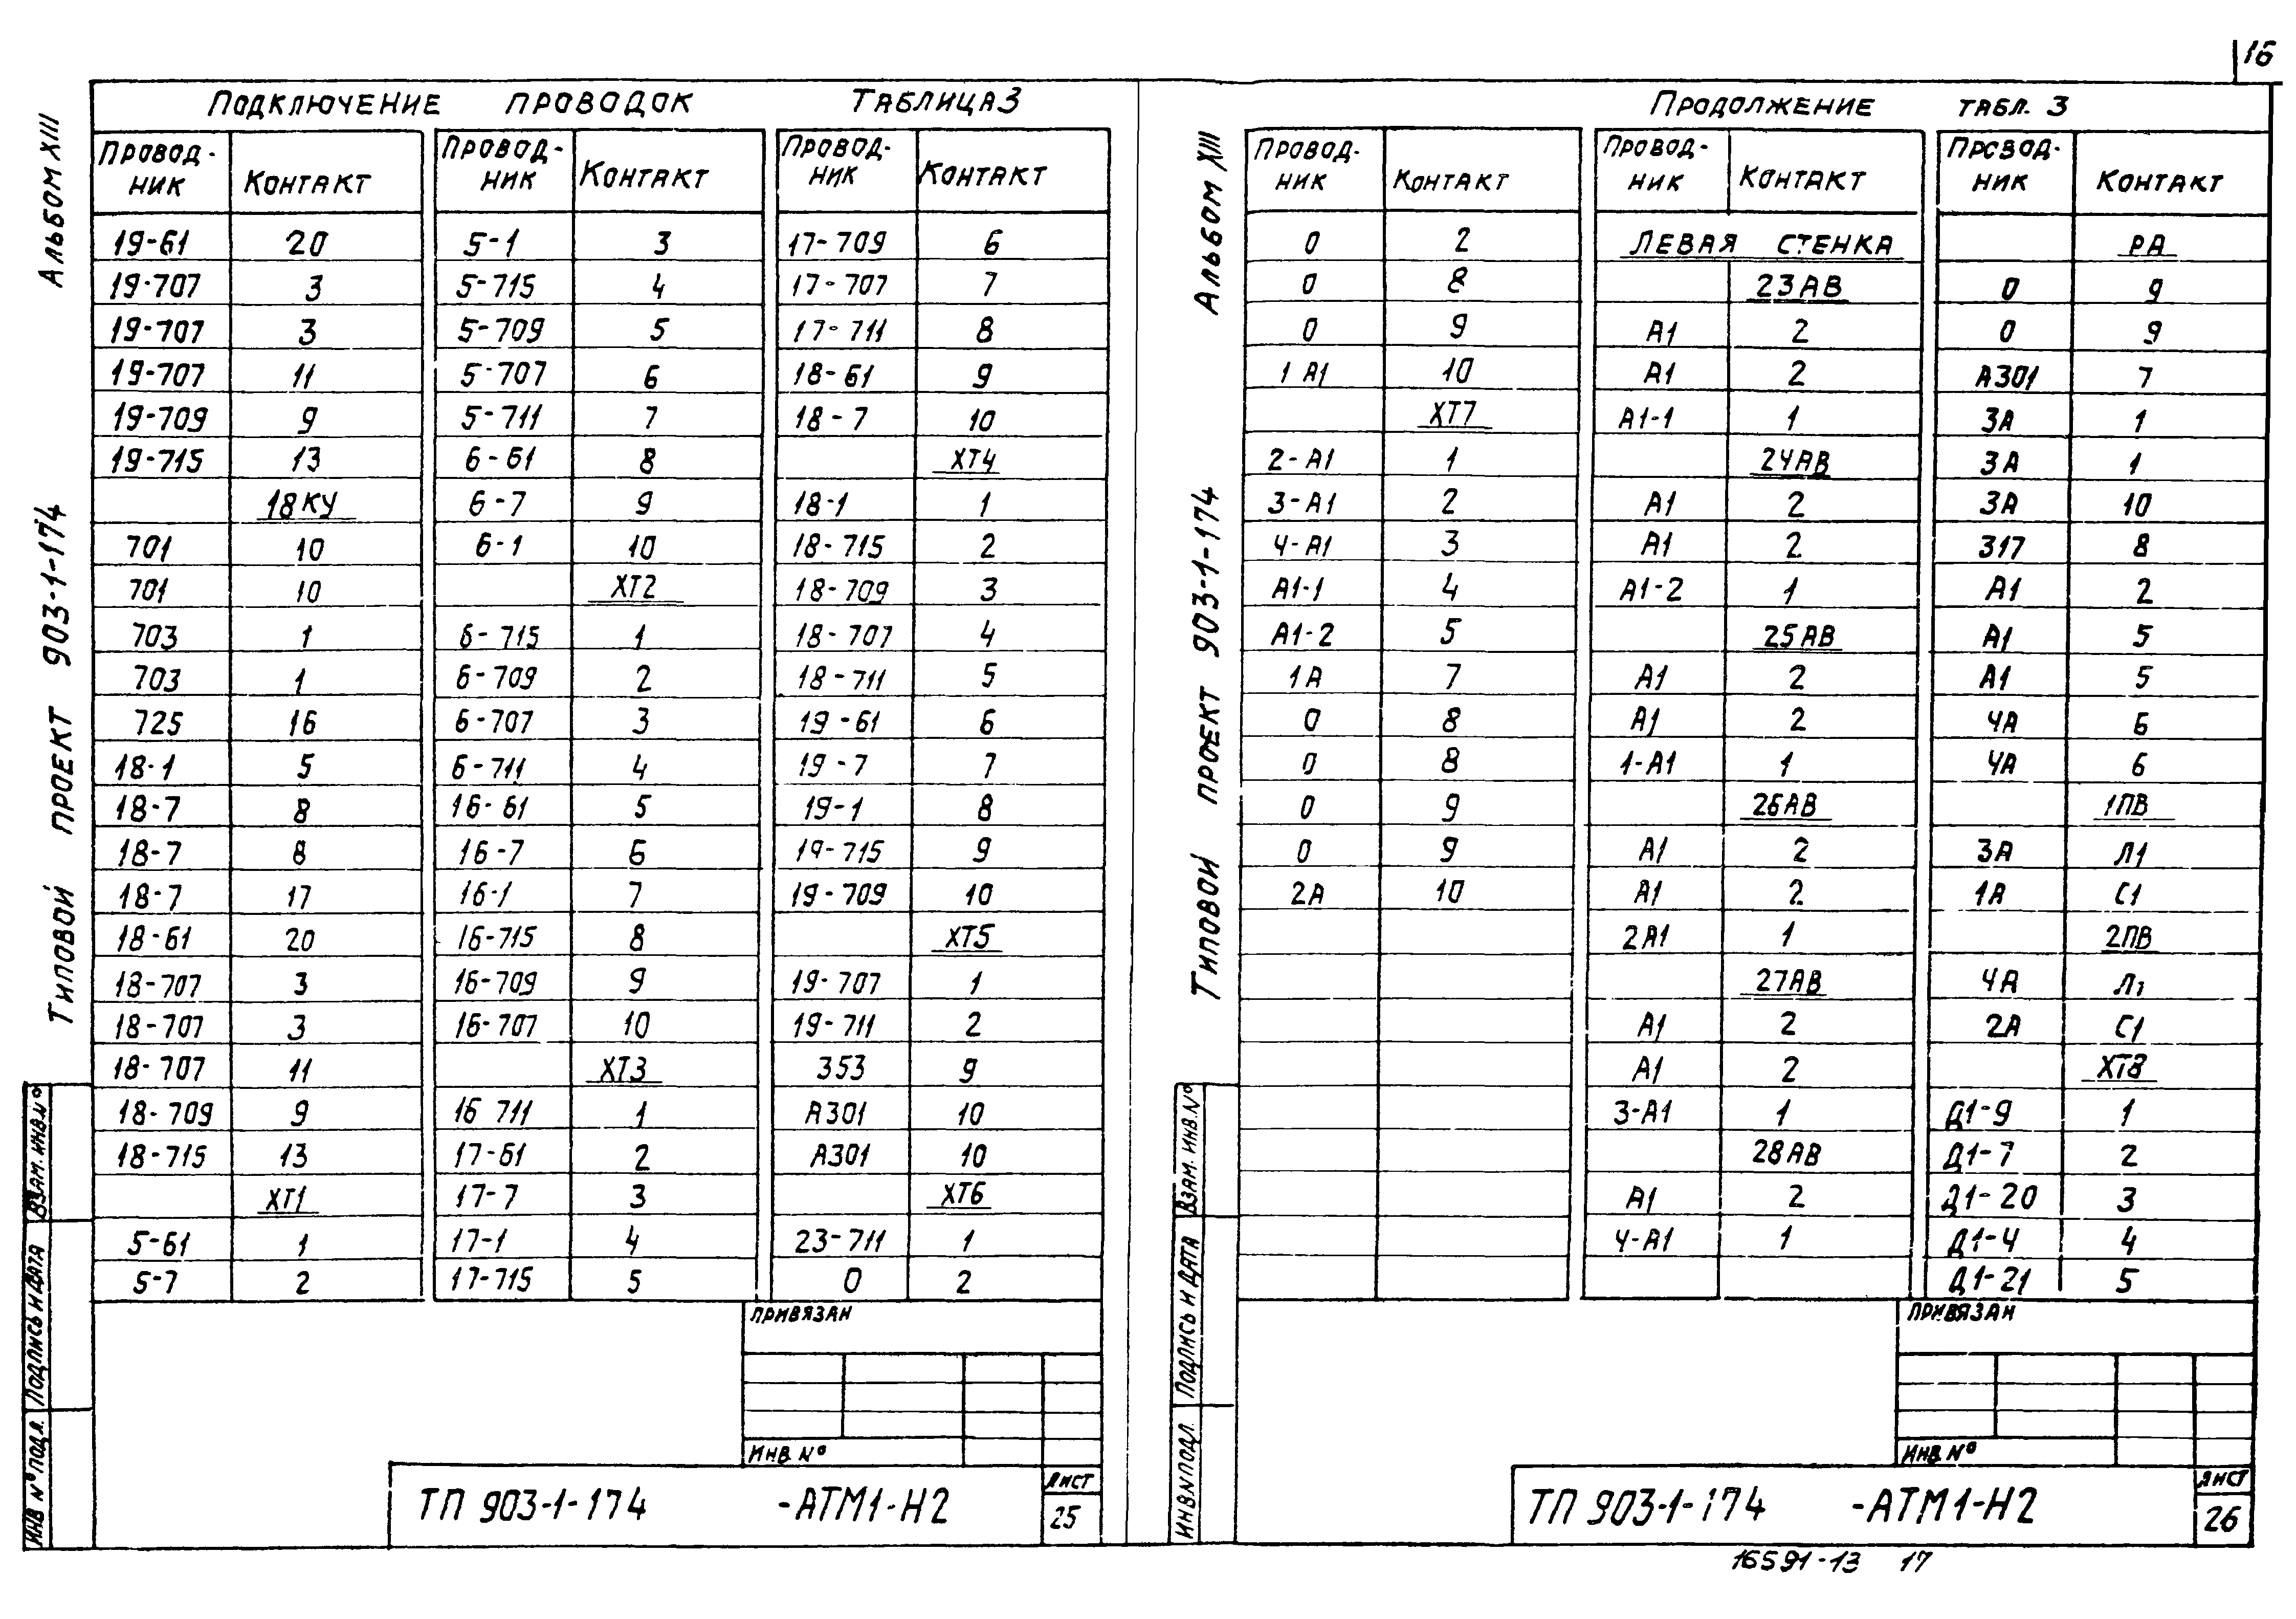 16
Альбом XIII
Типовой проект 903-1-174
Подключение проводок Таблица 3
Провод-ник Контакт Провод-ник Контакт Провод-ник Контакт
19-61 20 5-1 3 17-709 6
19-707 3 5-715 4 17-707 7
19-707 3 5-709 5 17-711 8
19-707 11 5-707 6 18-61 9
19-709 9 5-711 7 18-7 10
19-715 13 6-61 8 ХТ4
18КУ 6-7 9 18-1 1
701 10 6-1 10 18-715 2
701 10 ХТ2 18-709 3
703 1 6-715 1 18-707 4
703 1 6-709 2 18-711 5
725 16 6-707 3 19-61 6
18-1 5 6-711 4 19-7 7
18-7 8 16-61 5 19-1 8
18-7 8 16-7 6 19-715 9
18-7 17 16-1 7 19-709 10
18-61 20 16-715 8 ХТ5
18-707 3 16-709 9 19-707 1
18-707 3 16-707 10 19-711 2
18-707 11 ХТ3 353 9
18-709 9 16 711 1 А301 10
18-715 13 17-61 2 А301 10
ХТ1 17-7 3 ХТ6
5-61 1 17-1 4 23-711 1
5-7 2 17-715 5 0 2
Привязан
Инв. №
ТП 903-1-174 -АТМ1-Н2
Лист
25
Взам. инв. №
Подпись и дата
Инв № подл.
Альбом XIII
Типовой проект 903-1-174
Продолжение табл. 3
Провод-ник Контакт Провод-ник Контакт Провод-ник Контакт
0 2 Левая стенка РА
0 8 23АВ 0 9
0 9 А1 2 0 9
1А1 10 А1 2 А301 7
ХТ7 А1-1 1 3А 1
2-А1 1 24АВ 3А 1
3-А1 2 А1 2 3А 10
4-А1 3 А1 2 317 8
А1-1 4 А1-2 1 А1 2
А1-2 5 25АВ А1 5
1А 7 А1 2 А1 5
0 8 А1 2 4А 6
0 8 1-А1 1 4А 6
0 9 26АВ 1ПВ
0 9 А1 2 3А Л1
2А 10 А1 2 1А С1
2А1 1 2ПВ
27АВ 4А Л1
А1 2 2А С1
А1 2 ХТ8
3-А1 1 Д1-9 1
28АВ Д1-7 2
А1 2 Д1-20 3
4-А1 1 Д1-4 4
Д1-21 5
Привязан
Инв. №
ТП 903-1-174 -АТМ1-Н2
Лист
26
Взам. инв. №
Подпись и дата
Инв № подл.
16591-13 17